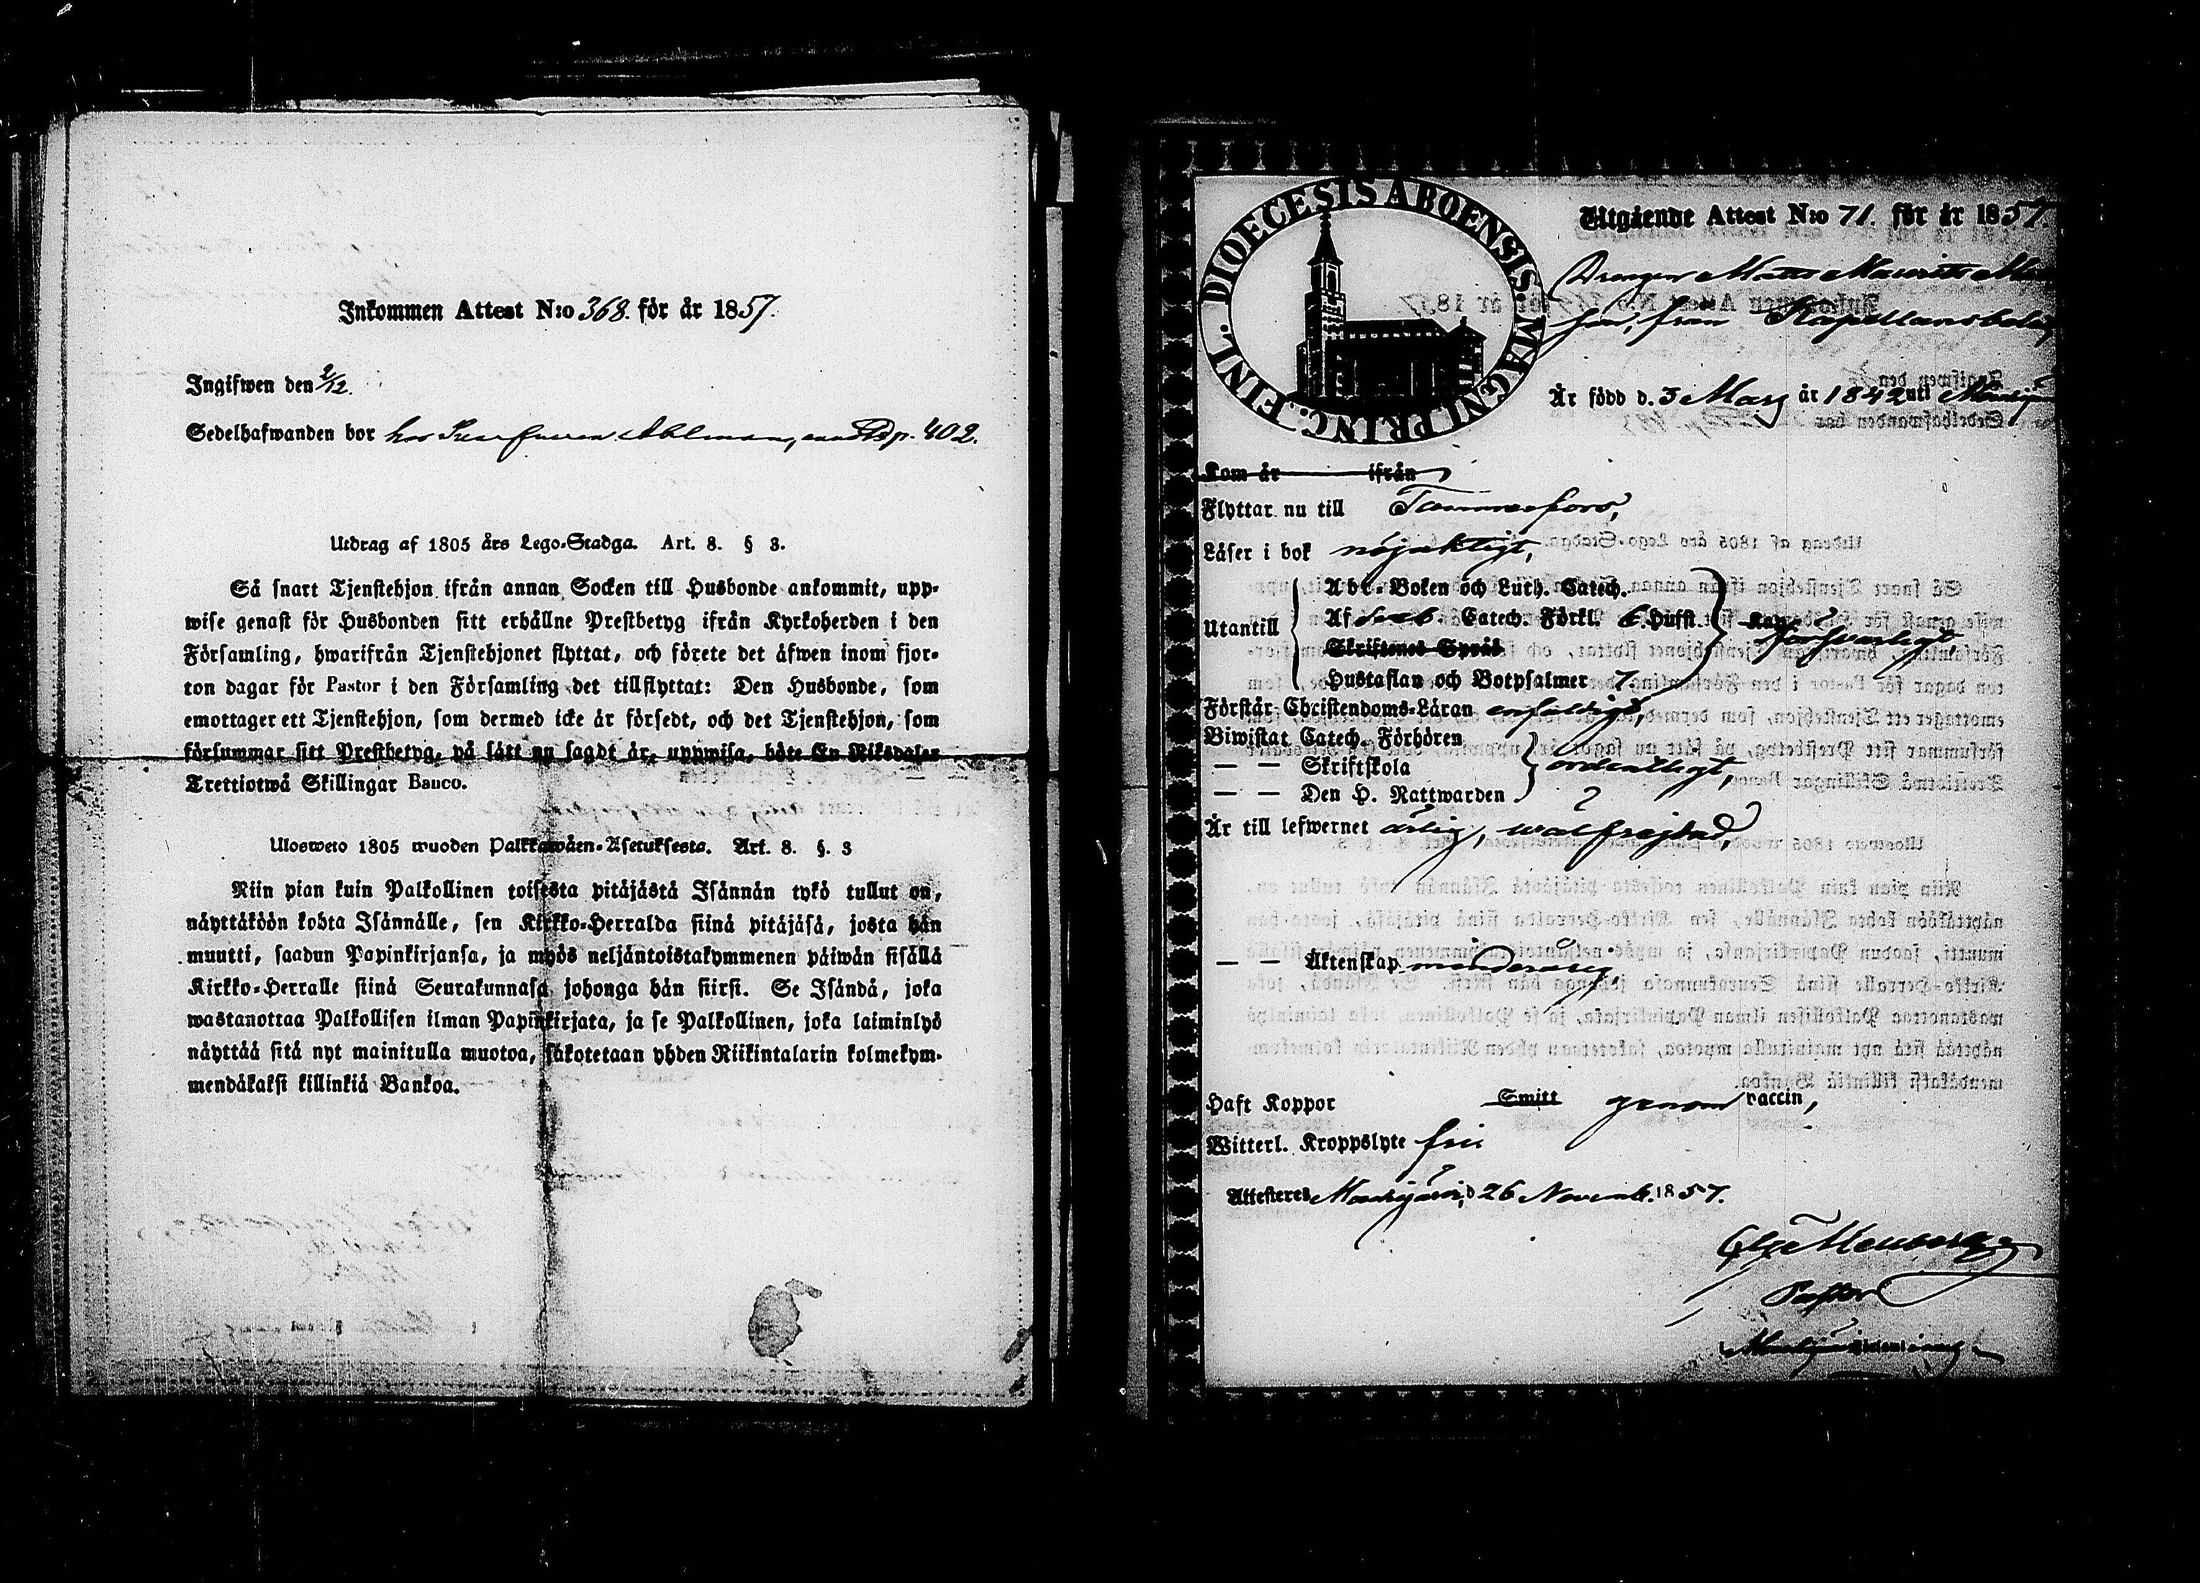 Inkommen Attest N:o 368. för år 1857.
Ingifwen den 2/12.
Sedelhafwanden bor hos Ahlman, p. 402.
Utdrag af 1805 års Lego-Stadga. Art. 8. § 3.
Så snart Tjenstehjon ifrån annan Socken till Husbonde ankommit, upp-
wise genast för Husbonden sitt erhållne Prestbetyg ifrån Kyrkoherden i den
Församling, hwarifrån Tjenstehjonet flyttat, och förete det äfwen inom fjor-
ton dagar för Pastor i den Församling det tillflyttat: Den Husbonde, som
emottager ett Tjenstehjon, som dermed icke är försedt, och det Tjenstehjon, som
försummar sitt Prestbetyg, på sätt nu sagdt är, uppwisa, böte En Riksdaler
Trettiotwå Skillingar Banco.
Ulosweto 1805 wuoden Palkkawäen-Asetuksesta. Art. 8. §. 3
Niin pian kuin Palkollinen toisesta pitäjästä Isännän tykö tullut on,
näyttäköön kohta Isännälle, sen Kirkko-Herralda siinä pitäjäsä, josta hän
muutti, saadun Papinkirjansa, ja myös neljäntoistakymmenen päiwän sisällä
Kirkko-Herralle siinä Seurakunnasa johonga hän siirsi. Se Isändä, joka
wastanottaa Palkollisen ilman Papinkirjata, ja se Palkollinen, joka laiminlyö
näyttää sitä nyt mainitulla muotoa, sakotetaan yhden Riikintalarin kolmekym-
mendäkaksi killinkiä Bankoa.
DIOECESIS ABOENSIS. MAGNI PRINC. FINL.
Utgående Attest N:o 71. för år 1857
Drengen Mats Mauritz
son, från Kapellansbol
Är född d. 3 Mars år 1842 uti
Kom år ifrån
Flyttar nu till Tammerfors,
Läser i bok nöjaktigt,
Utantill
Abc-Boken och Luth. Catech.
Af Sveb. Catech. Förkl. 6. Hufst.
Skriftenes Språk
Hustaflan och Botpsalmer 7.
försvarligt,
Förstår Christendoms-Läran enfaldigt,
Biwistat Catech. Förhören
— — Skriftskola
— — Den H. Nattwarden
ordentligt,
Är till lefwernet ärlig, wälfrejdad,
— — Äktenskap minderårig,
Haft Koppor Smitt genom vaccin,
Witterl. Kroppslyte fri
Attesteres d 26 Novemb. 1857.
Pastor